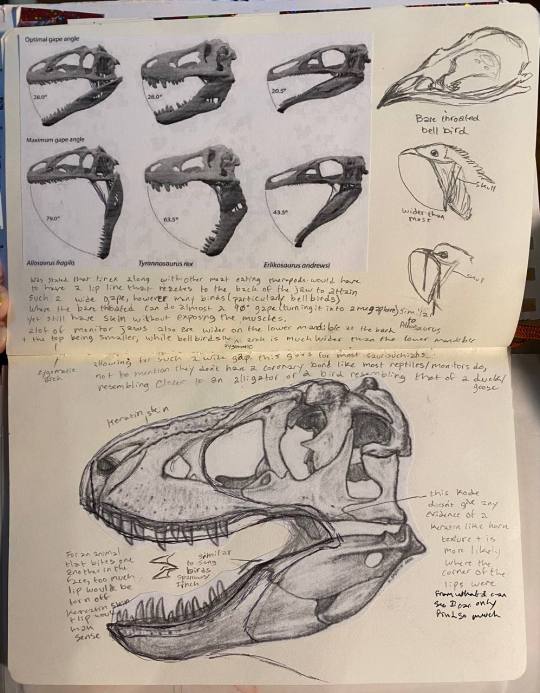 Optimal gape angle
28.0°
28.0°
20.5°
Maximum gape angle
79.0°
63.5°
43.5°
Allosaurus fragilis
Tyrannosaurus rex
Erlikosaurus andrewsi
Bare throated
bell bird
skull
wider than
most
skull
Was stated that linex along with other meat eating theropods would have
to have a lip line that reaches to the back of the jaw to attain
such a wide gape, however many birds (particularly bell birds)
where the bare throated can do almost a 90° gape (turning it into a megaphone) similar
to
Allosaurus
yet still have skin without exposing the muscles.
alot of monitor jaws also are wider on the lower mandible at the back
+ the top being smaller, while bell birds arch is much wider than the lower mandible
zygomatic
zygomatic
arch
allowing for such a wide gap this goes for most saurischians
not to mention they don't have a coronary bond like most reptiles/monitors do,
resembling closer to an alligator or a bird resembling that of a duck/
goose
Keratin skin
this node
doesn't give any
evidence of a
keratin like horn
texture + is
more likely
where the
corner of the
lips were
from what I can
see I can only
find so much
For an animal
that bites one
another in the
faces, too much
lip would be
torn off
keratin skin
+ lip would
make
sense
similar
to song
birds
sparrow/
finch